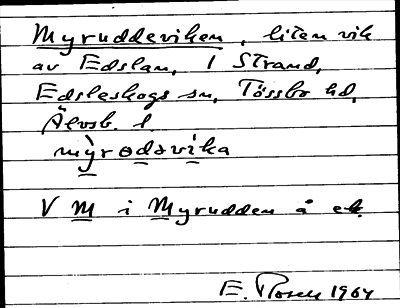 Myruddeviken, liten vik
av Edslan, i Strand,
Edsleskogs sn, Tössbo hd,
Älvsb. l.
myrodsvika
V M i Myrudden å ek.
E. Rosell 1964